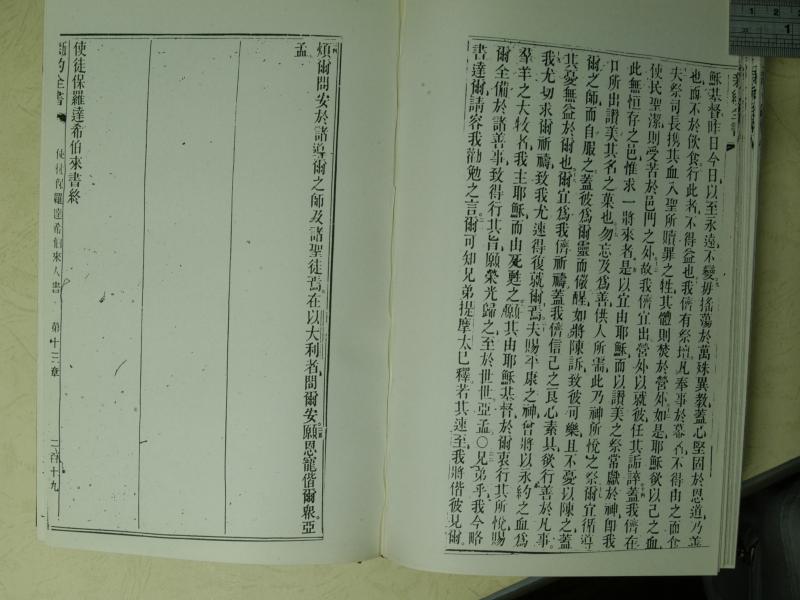 穌基督昨日今日以至永遠不變毋搖蕩於萬殊異教蓋心堅固於恩道乃善
也而不於飲食行此者不得益也我儕有祭壇凡奉事於幕者不得由之而食
夫祭司長携其血入聖所贖罪之牲其體則焚於營外如是耶穌欲以己之血
使民聖潔則受苦於邑門之外故我儕宜出營外以就彼任其詬誶蓋我儕在
此無恒存之邑惟求一將來者是以宜由耶穌而以讚美之祭常獻於神卽我
口所出讚美其名之菓也勿忘及爲善供人所需此乃神所悅之祭爾宜循導
爾之師而自服之蓋彼爲爾靈而儆醒如將陳訴致彼可樂且不憂以陳之蓋
其憂無益於爾也爾宜爲我儕祈禱蓋我儕信己之良心素具欲行善於凡事
我尤切求爾祈禱致我尤速得復就爾焉夫賜平康之神曾將以永約之血爲
羣羊之大牧者我主耶穌而由死甦之願其由耶穌基督於爾衷行其所悅賜
爾全備於諸善事致得行其旨願榮光歸之至於世世亞孟○兄弟乎我今略
書達爾請容我勸勉之言爾可知兄弟提摩太已釋若其速至我將偕彼見爾
煩爾問安於諸導爾之師及諸聖徒焉在以大利者問爾安願恩寵偕爾衆亞
孟
使徒保羅達希伯來書終
新約全書
使徒保羅達希伯來人書
第十三章
二百十九